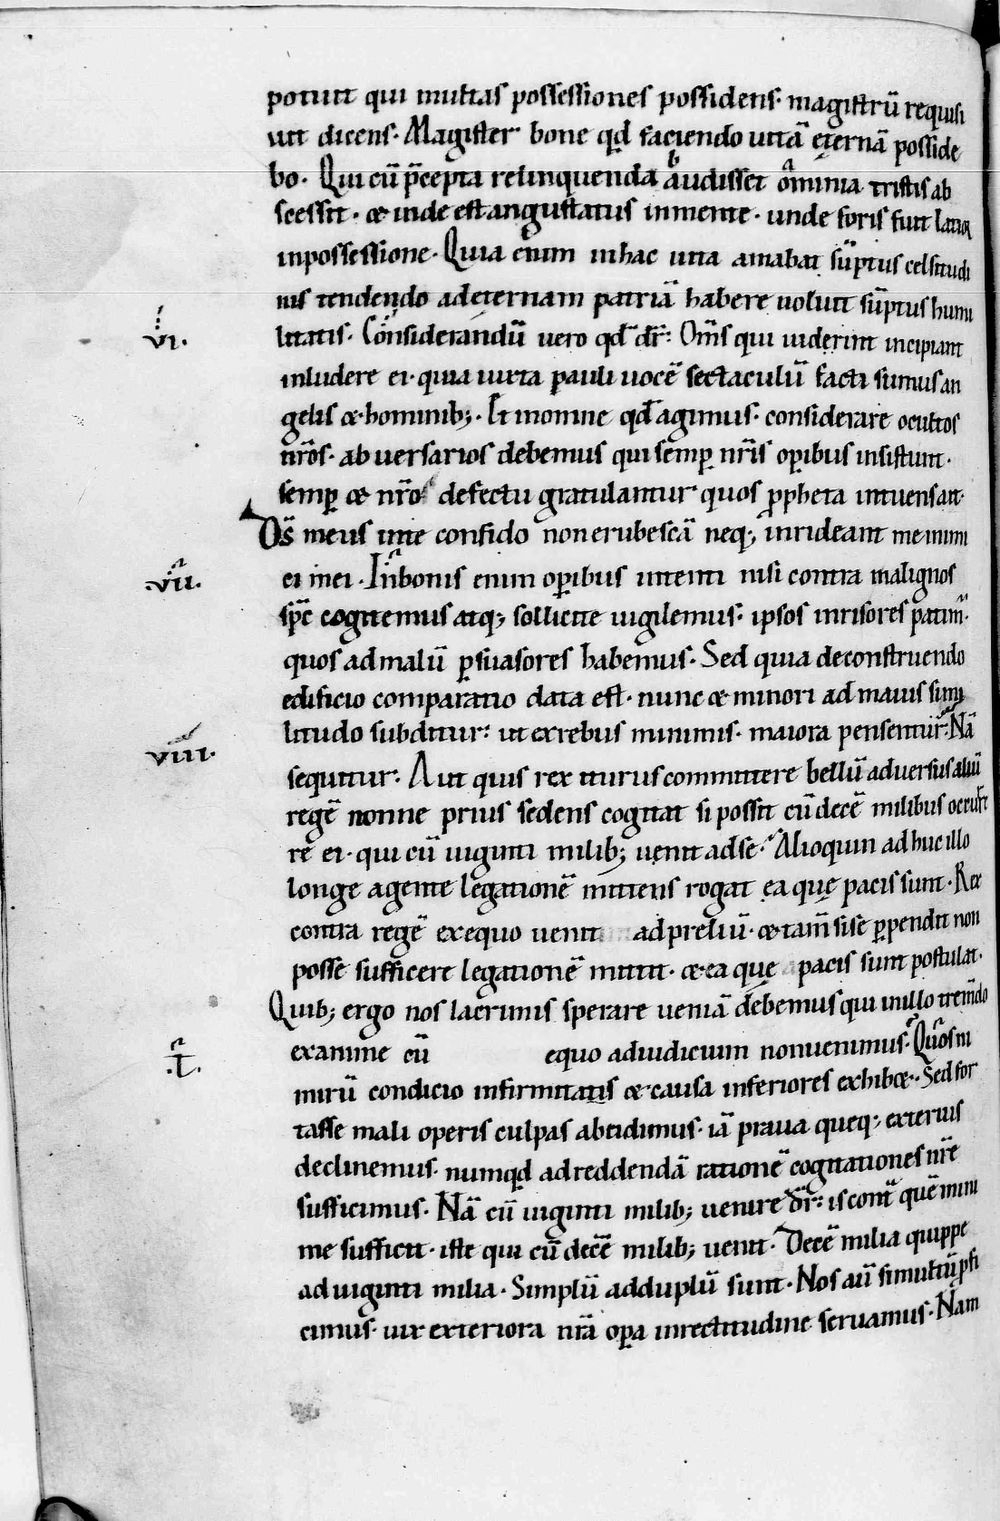 potuit qui multas possessiones possidens· magistrū requisi
uit dicens· Magister bone qd faciendo uitā ęternā posside
bo· Qui cū p̄cepta relinquenda audisset omnia tristis ab
scessit· & inde est angustatus inmente· unde foris fuit latior
inpossessione· Quia enim inhac uita amabat sūptus celsitudi
nis tendendo ad ęternam patriā habere noluit sūptus humi
vi.
litatis· Considerandū uero qd̄ dr̄: Om̄s qui uiderint incipiant
inludere ei· quia iuxta pauli uocē spectaculū facti sumus an
gelis & hominib;· Et inomne qd̄ agimus· considerare ocultos
nr̄os· aduersarios debemus qui semp̱ nr̄is op̱ibus insistunt·
semp̱ & nr̄o defectu gratulantur quos p̱pheta intuens ait·
Ds̄ meus inte confido non erubescā neq; inrideant me inimi
vii.
ci mei· In bonis enim op̱ibus intenti nisi contra malignos
sp̄c cogitemus atq; sollicite uigilemus· ipsos inrisores patim̄·
quos ad malū p̱suasores habemus· Sed quia deconstruendo
edificio comparatio data est· nunc & minori ad maius simi
viii.
litudo subditur: ut exrebus minimis· maiora pensentur· Nā
sequitur· Aut quis rex iturus committere bellū aduersus aliū
regē nonne prius sedens cogitat si possit cū decē milibus occur
re ei· qui cū uiginti milib; uenit adse· Alioquin adhuc illo
longe agente legationē mittens rogat ea quę pacis sunt· Rex
contra regē exequo uenit ad preliū· & tam̄ si se p̱pendit non
posse sufficere legationē mittit· & ea quę pacis sunt postulat·
Quib; ergo nos lacrimis sperare ueniā debemus qui inillo trem̄do
examine cū equo adiudicium nonuenimus· Quos ni
.i.
mirū condicio infirmitatis & causa inferiores exhib&· Sed for
tasse mali operis culpas abcidimus· iā praua queq; exterius
declinemus· numqd adreddendā rationē cogitationes nr̄e
sufficimus· Nā cū uiginti milib; uenire dr̄: is cont̄ quē mini
me sufficit· iste qui cū decē milib; uenit· Decē milia quippe
ad uiginti milia· Simplū adduplū sunt· Nos aū si multū p̱fi
cimus· uix exteriora nr̄a op̱a inrectitudine seruamus· Nam